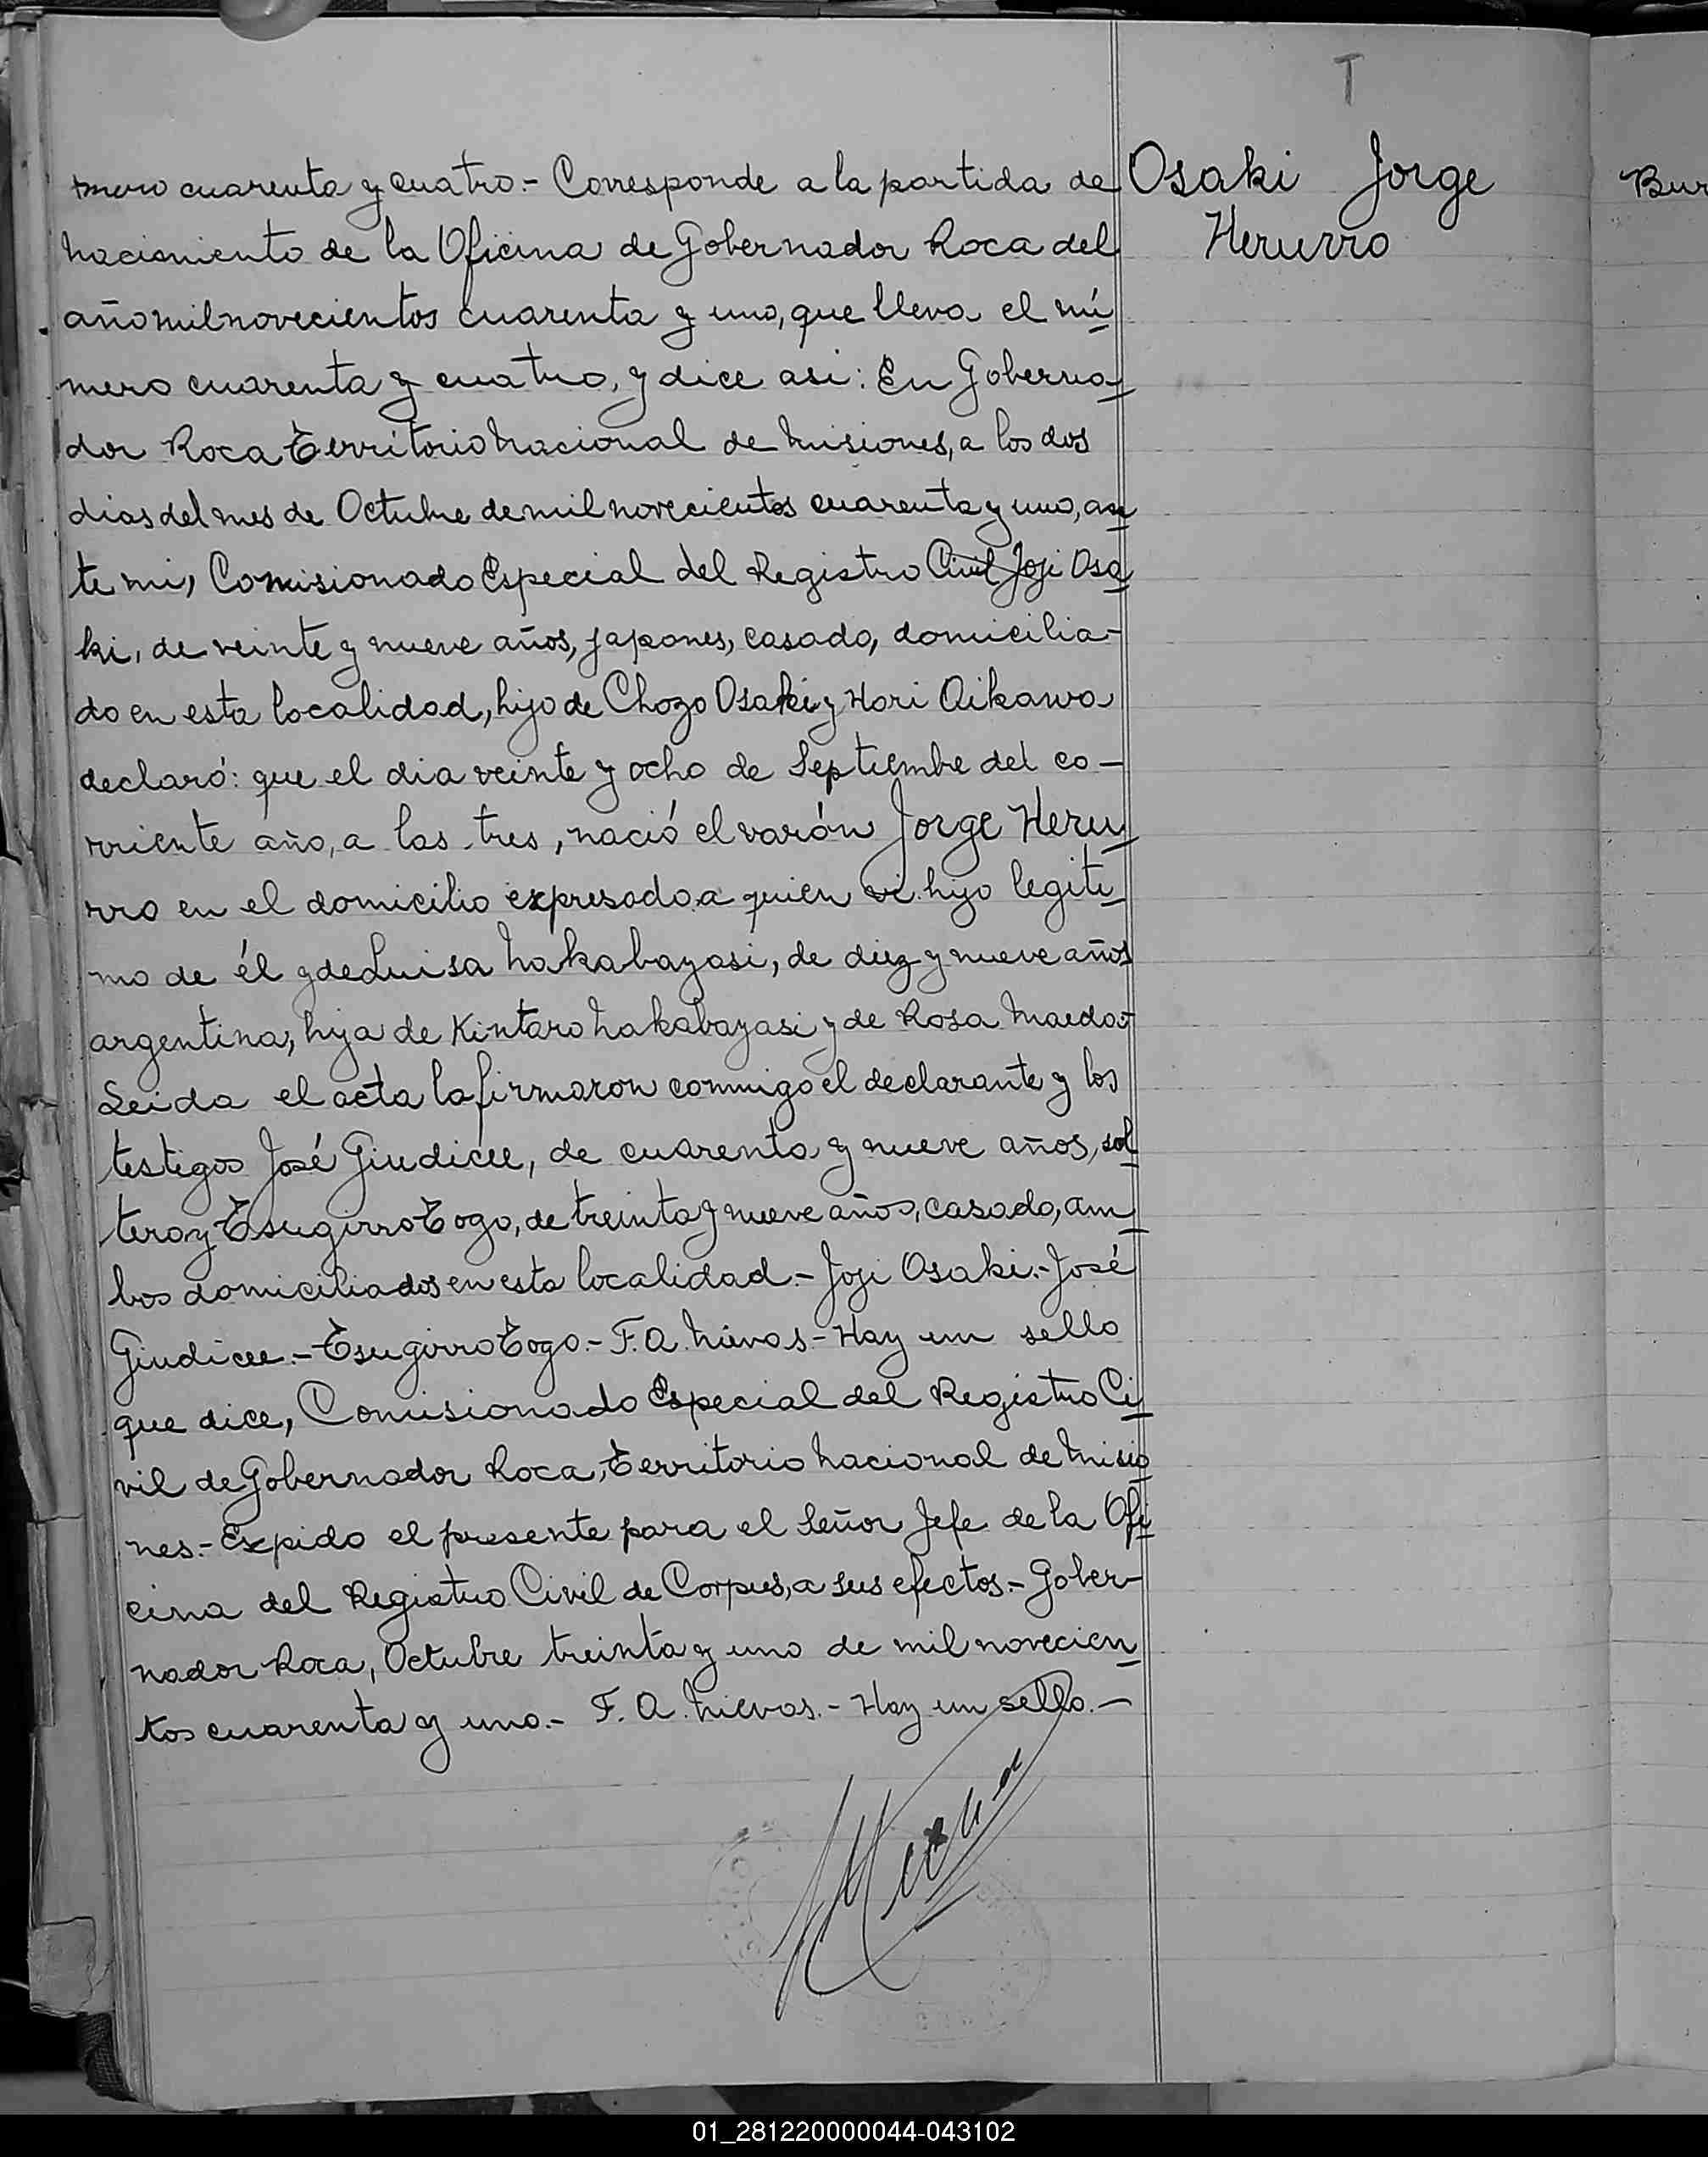 T
Osaki Jorge
Herurro
Bur
mero cuarenta y cuatro.- Corresponde a la partida de
nacimiento de la Oficina de Gobernador Roca del
año mil novecientos cuarenta y uno, que lleva el nú
mero cuarenta y cuatro, y dice asi: En Goberna
dor Roca Territorio Nacional de Misiones, a los dos
dias del mes de Octubre de mil novecientos cuarenta y uno, an
te mi, Comisionado Especial del Registro Civil Joji Osa
ki, de veinte y nueve años, japones, casado, domicilia-
do en esta localidad, hijo de Chozo Osaki y Hori Aikawa
declaró: que el dia veinte y ocho de Septiembre del co-
rriente año, a las tres, nació el varón Jorge Heru
rro en el domicilio expresado a quien vi. hijo legiti
mo de él y de Luisa Nakabayasi, de diez y nueve años
argentina, hija de Kintaro Nakabayasi y de Rosa Maeda.-
Leida el acta la firmaron conmigo el declarante y los
testigos José Giudicee, de cuarenta y nueve años, sol
tero y Tsugirro Togo, de treinta y nueve años, casado, am
bos domiciliados en esta localidad.- Joji Osaki.- José
Giudicee.- Tsugirro Togo.- F. A. Nievas.- Hay un sello
que dice, Comisionado Especial del Registro Ci
vil de Gobernador Roca, Territorio Nacional de Misio
nes.- Expido el presente para el Señor Jefe de la Ofi
cina del Registro Civil de Corpus, a sus efectos.- Gober-
nador Roca, Octubre treinta y uno de mil novecien
tos cuarenta y uno.- F. A. Nievas.- Hay un sello.-
01_281220000044-043102